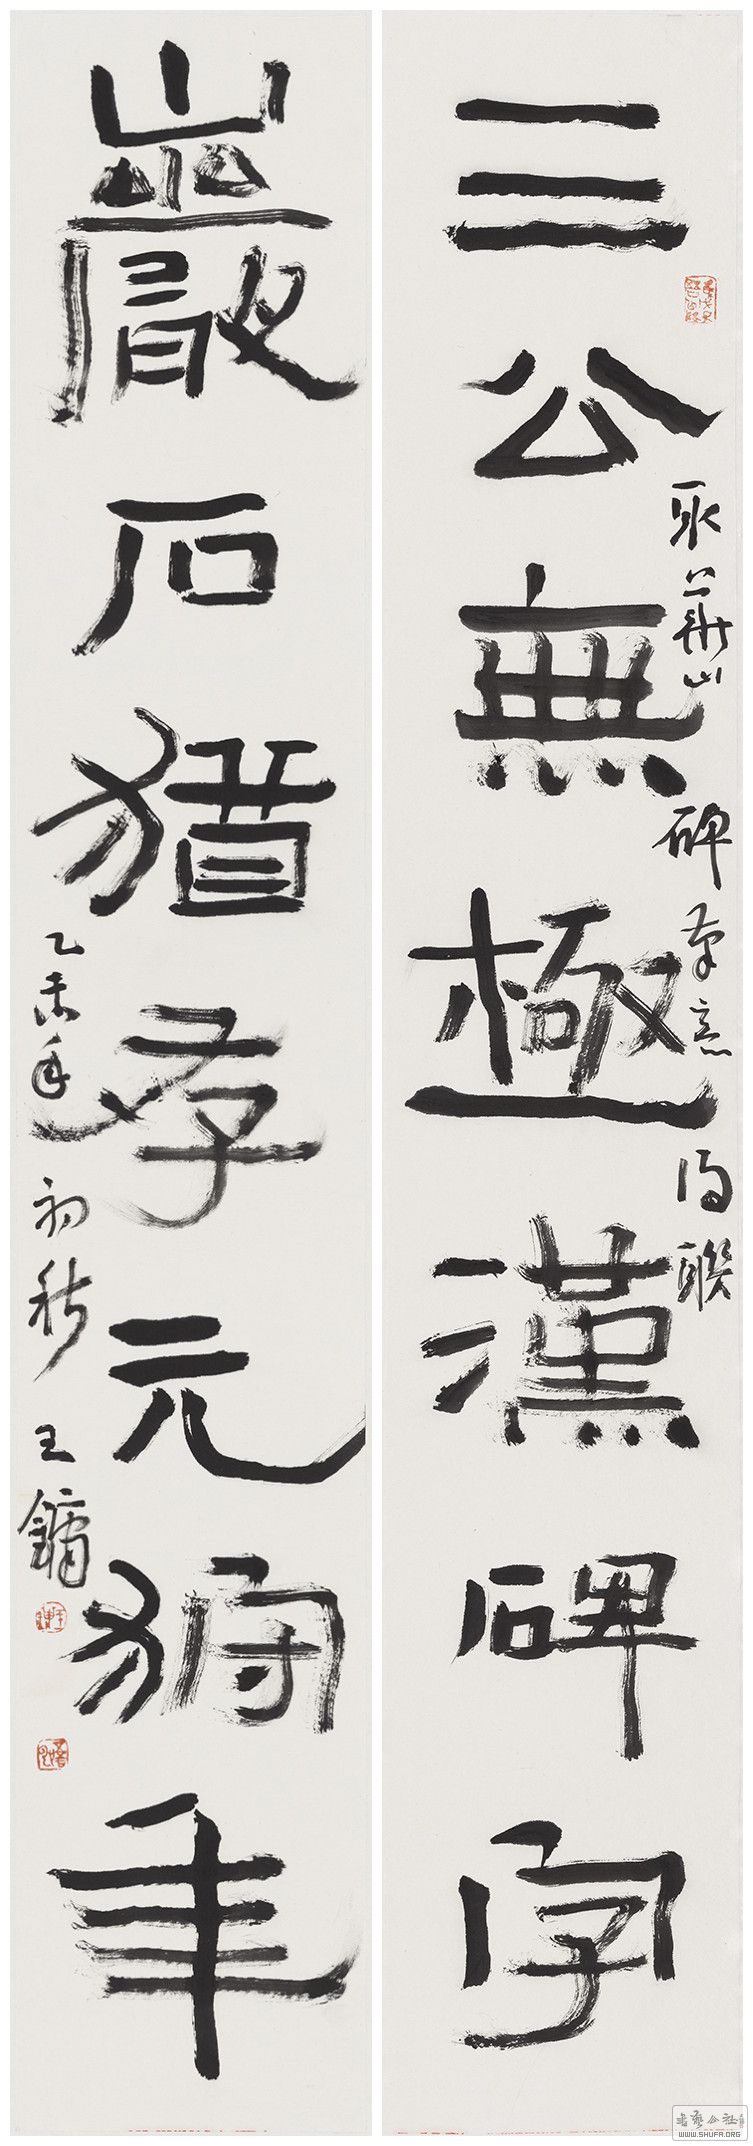 三公無極漢碑字
取華山碑筆意
聯
巖石猶存元狩年
乙未年初秋王鏞
書藝公社
WWW.SHUFA.ORG